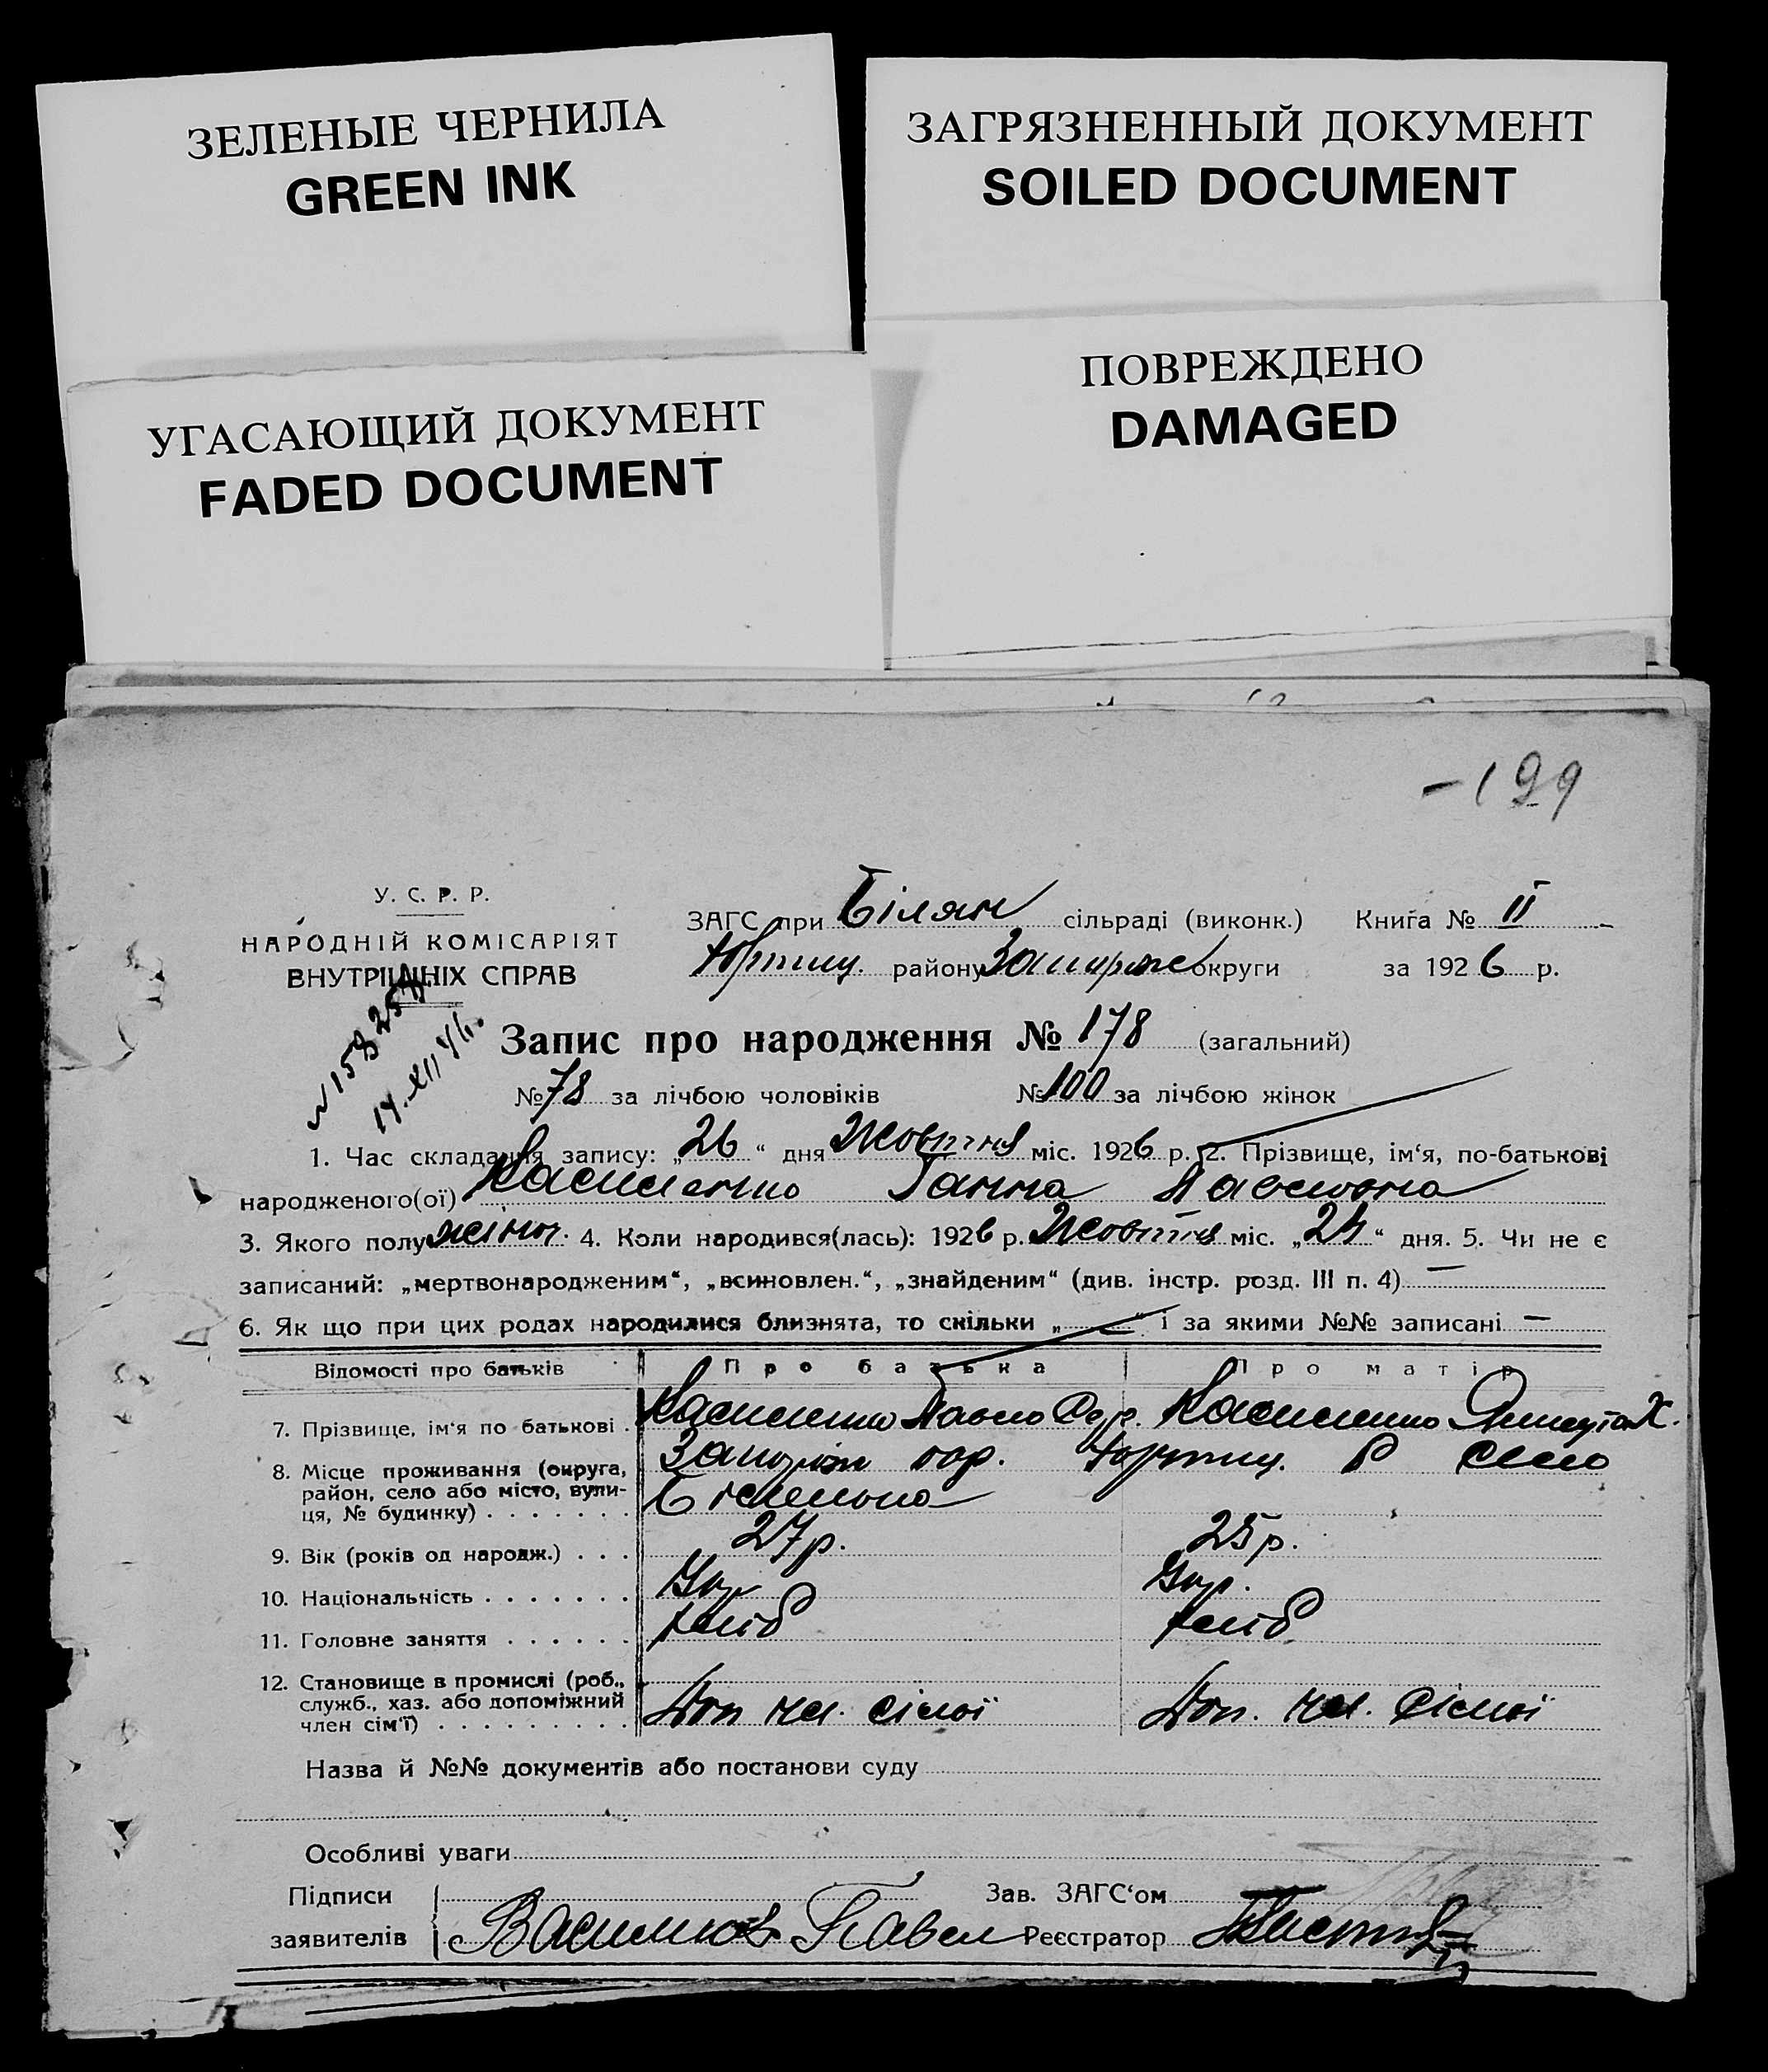 ЗЕЛЕНЫЕ ЧЕРНИЛА
GREEN INK
ЗАГРЯЗНЕННЫЙ ДОКУМЕНТ
SOILED DOCUMENT
УГАСАЮЩИЙ ДОКУМЕНТ
FADED DOCUMENT
ПОВРЕЖДЕНО
DAMAGED
-199
У. С. Р. Р.
НАРОДНІЙ КОМІСАРІЯТ
ВНУТРІШНІХ СПРАВ
ЗАГС при Білян сільраді (виконк.) Книга № II
Хортиц. району Запоріж округи за 1926 р.
Запис про народження № 178 (загальний)
№ 78 за лічбою чоловіків № 100 за лічбою жінок
1. Час складання запису: „26“ дня Жовтня міс. 1926 р. 2. Прізвище, ім'я, по-батькові
народженого(ої) Ганна Павловна
3. Якого полу жіноч. 4. Коли народився(лась): 1926 р. Жовтня міс. „24“ дня. 5. Чи не є
записаний: „мертвонародженим“, „всиновлен.“, „знайденим“ (див. інстр. розд. III п. 4) —
6. Як що при цих родах народилися близнята, то скільки „—“ і за якими №№ записані —
Відомості про батьків Про батька Про матір
7. Прізвище, ім'я по батькові . Павло
8. Місце проживання (округа, Запоріж окр. Хортиц. Р село
район, село або місто, вули-
ця, № будинку) . . . . . . .
9. Вік (років од народж.) . . . 27 р. 25 р.
10. Національність . . . . . . . Укр Укр.
11. Головне заняття . . . . . . хліб хліб
12. Становище в промислі (роб.,
служб., хаз. або допоміжний
член сім'ї) . . . . . . . . . Доп чл. сімї Доп. чл. сімї
Назва й №№ документів або постанови суду
Особливі уваги
Підписи Зав. ЗАГС'ом
заявителів Павел Реєстратор